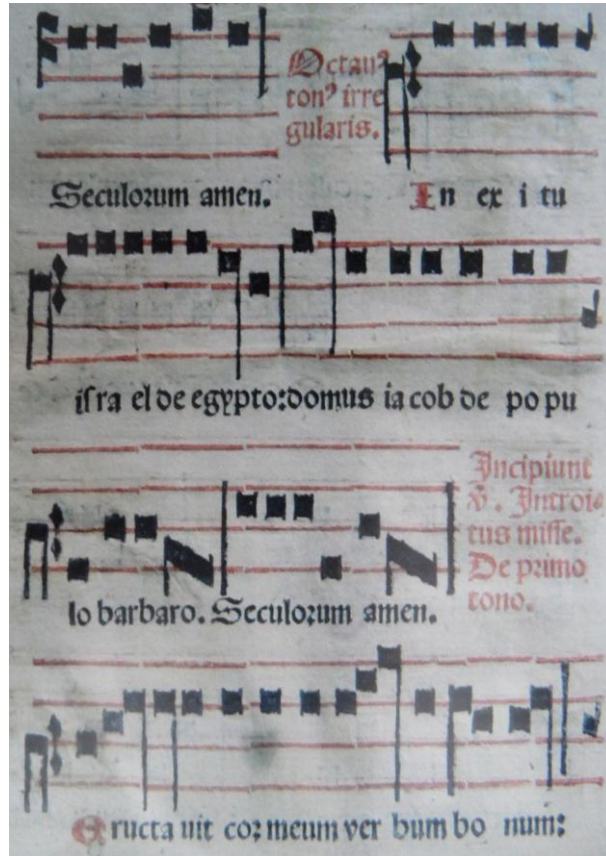 Octauꝰ
tonꝰ irre
gularis.
Seculoꝛum amen. In ex i tu
iſra el de egypto:domus ia cob de po pu
Incipiunt
v̄. Introi⸗
tus miſſe.
De primo
tono.
lo barbaro. Seculoꝛum amen.
Eructa uit coꝛ meum ver bum bo num: